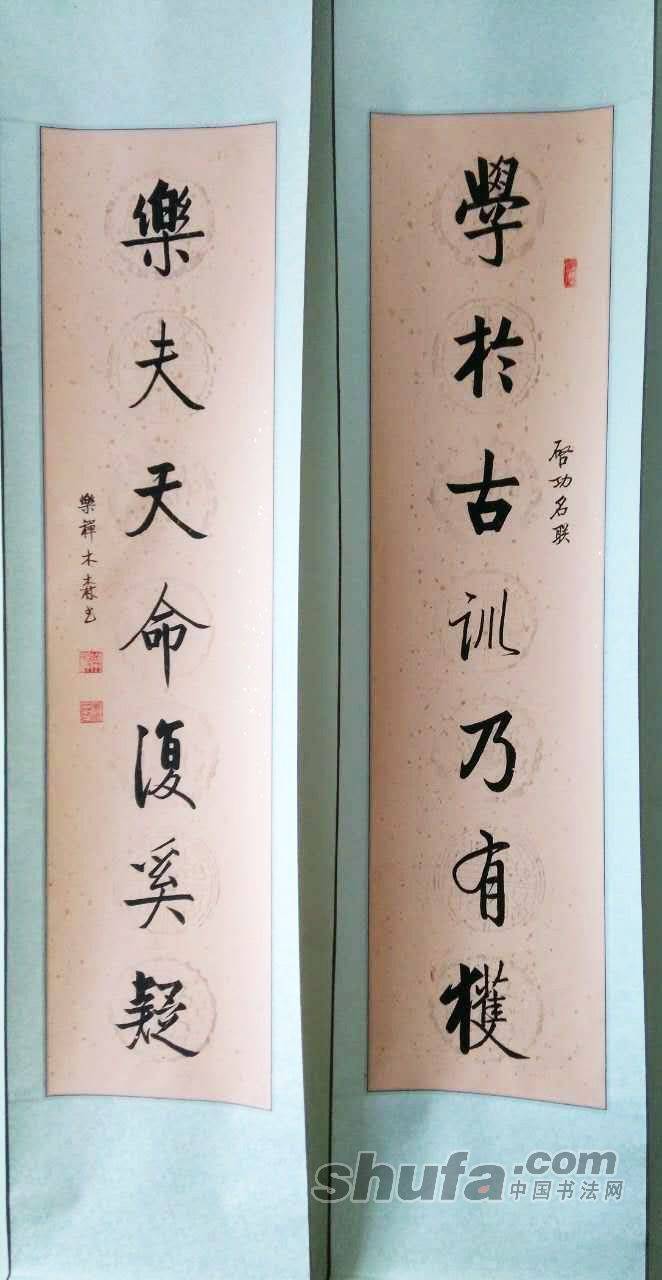 學於古訓乃有獲
啓功名联
樂夫天命復奚疑
樂禪木森书
shufa.com
中国书法网